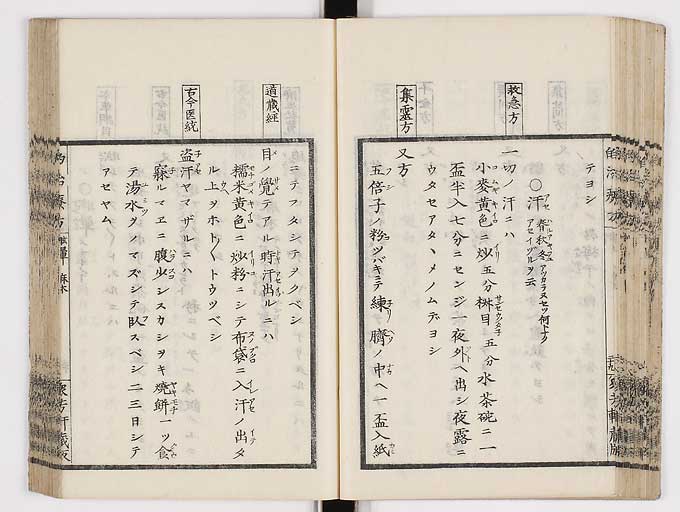 テヨシ
○汗 春秋冬アツカラヌセツ何トナク
アセイヅルヲ云
救急方
一切ノ汗ニハ
小麥黄色ニ炒五分桝目五分水茶碗ニ一
盃半入七分ニセンジ一夜外ヘ出シ夜露ニ
ウタセアタヽメノムガヨシ
又方
集靈方
五倍子ノ粉ツバキニテ練臍ノ中ヘ一盃入紙
ニテフタシテヲクベシ
道蔵經
目ノ覺テアル時汗出ルニハ
糯米黄色ニ炒粉ニシテ布袋ニ入汗ノ出タ
ル上ヲホト〱トウツベシ
古今医統
盗汗ヤマザルニハ
寐ルマヱニ腹少シスカシヲキ焼餅一ツ食
テ湯水ヲノマズシテ臥スベシ二三日シテ
アセヤム